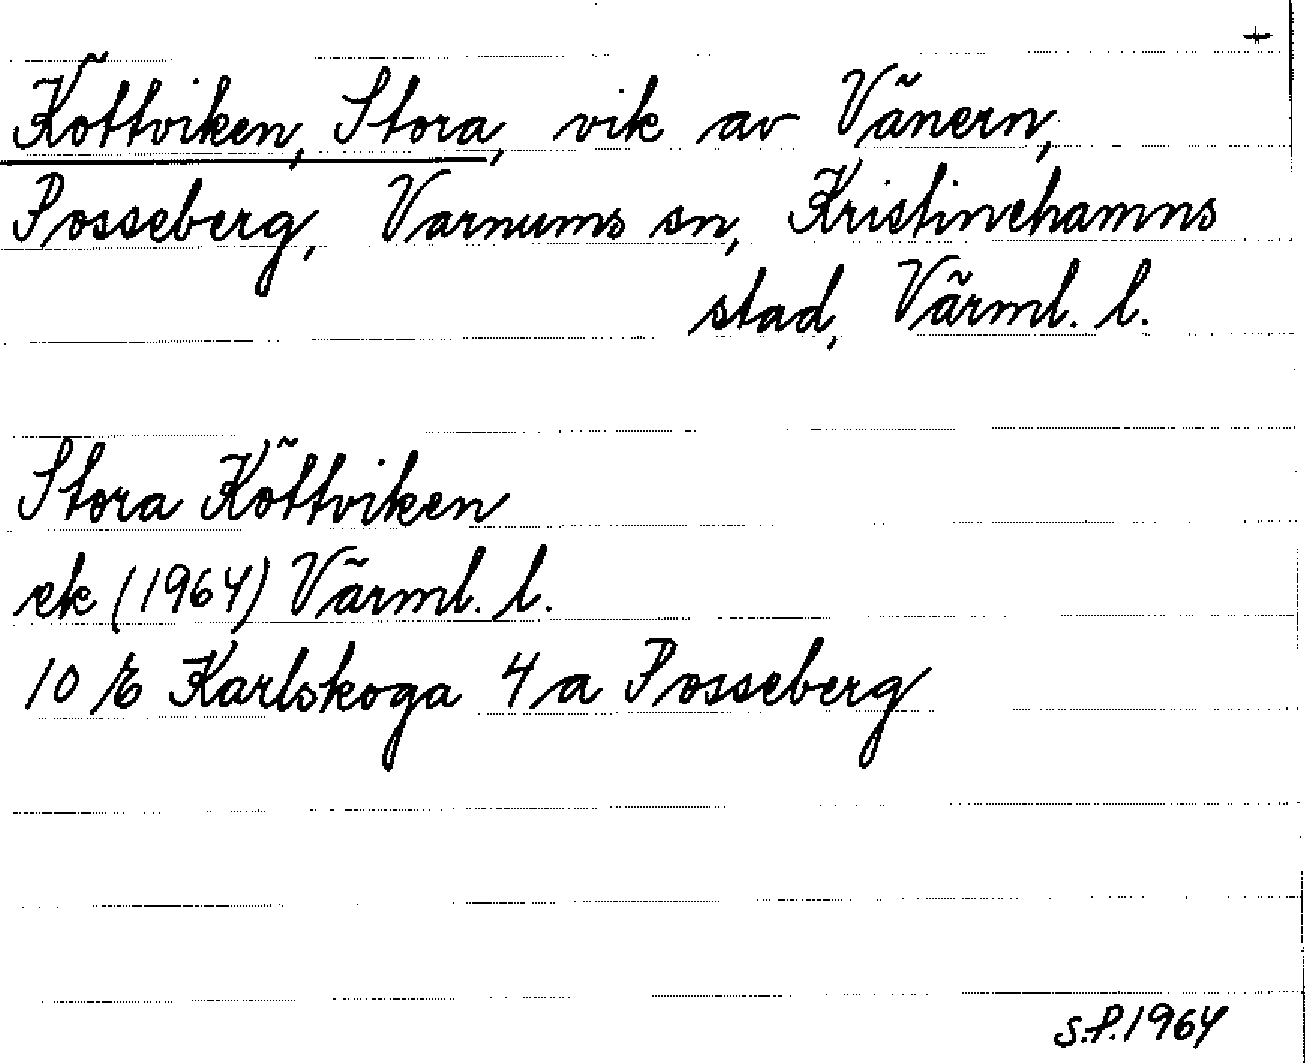 +
Köttviken, Stora, vik av Vänern,
Posseberg, Varnums sn, Kristinehamns
stad, Värml. l.
Stora Köttviken
ek (1964) Värml. l.
10 E Karlskoga 4 a Posseberg
S.P. 1964